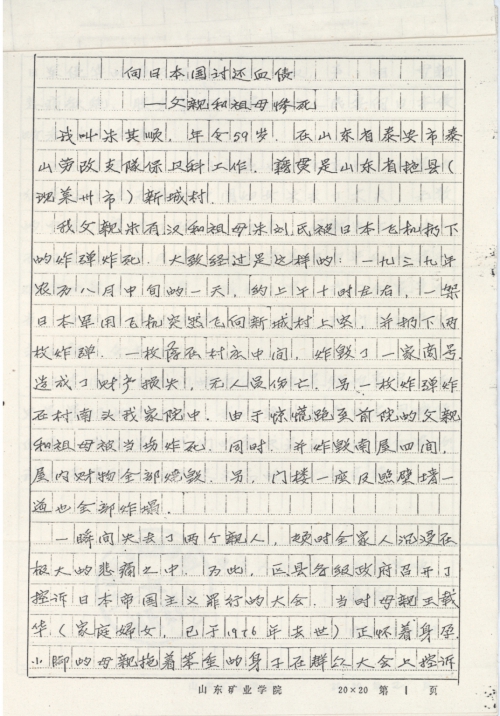 向日本国讨还血债
——父亲和祖母惨死
我叫朱其顺，年令59岁，在山东省泰安市泰
山劳改支队保卫科工作，籍贯是山东省掖县（
现莱州市）新城村。
我父亲朱有汉和祖母朱刘氏被日本飞机扔下
的炸弹炸死，大致经过是这样的：一九三九年
农历八月中旬的一天，约上午十时左右，一架
日本军用飞机突然飞向新城村上空，并扔下两
枚炸弹，一枚落在村庄中间，炸毁了一家商号，
造成了财产损失，无人员伤亡。另一枚炸弹炸
在村南头我家院中，由于惊慌跑至前院的父亲
和祖母被当场炸死，同时，并炸毁南屋四间，
屋内财物全部烧毁，另，门楼一座及照壁墙一
道也全部炸塌。
一瞬间失去了两个亲人，顿时全家人沉浸在
极大的悲痛之中，为此，区县各级政府召开了
控诉日本帝国主义罪行的大会，当时母亲王载
华（家庭婦女，已于1956年去世）正怀着身孕，
小脚的母亲拖着笨重的身子在群众大会上控诉
山东矿业学院 20×20 第 1 页